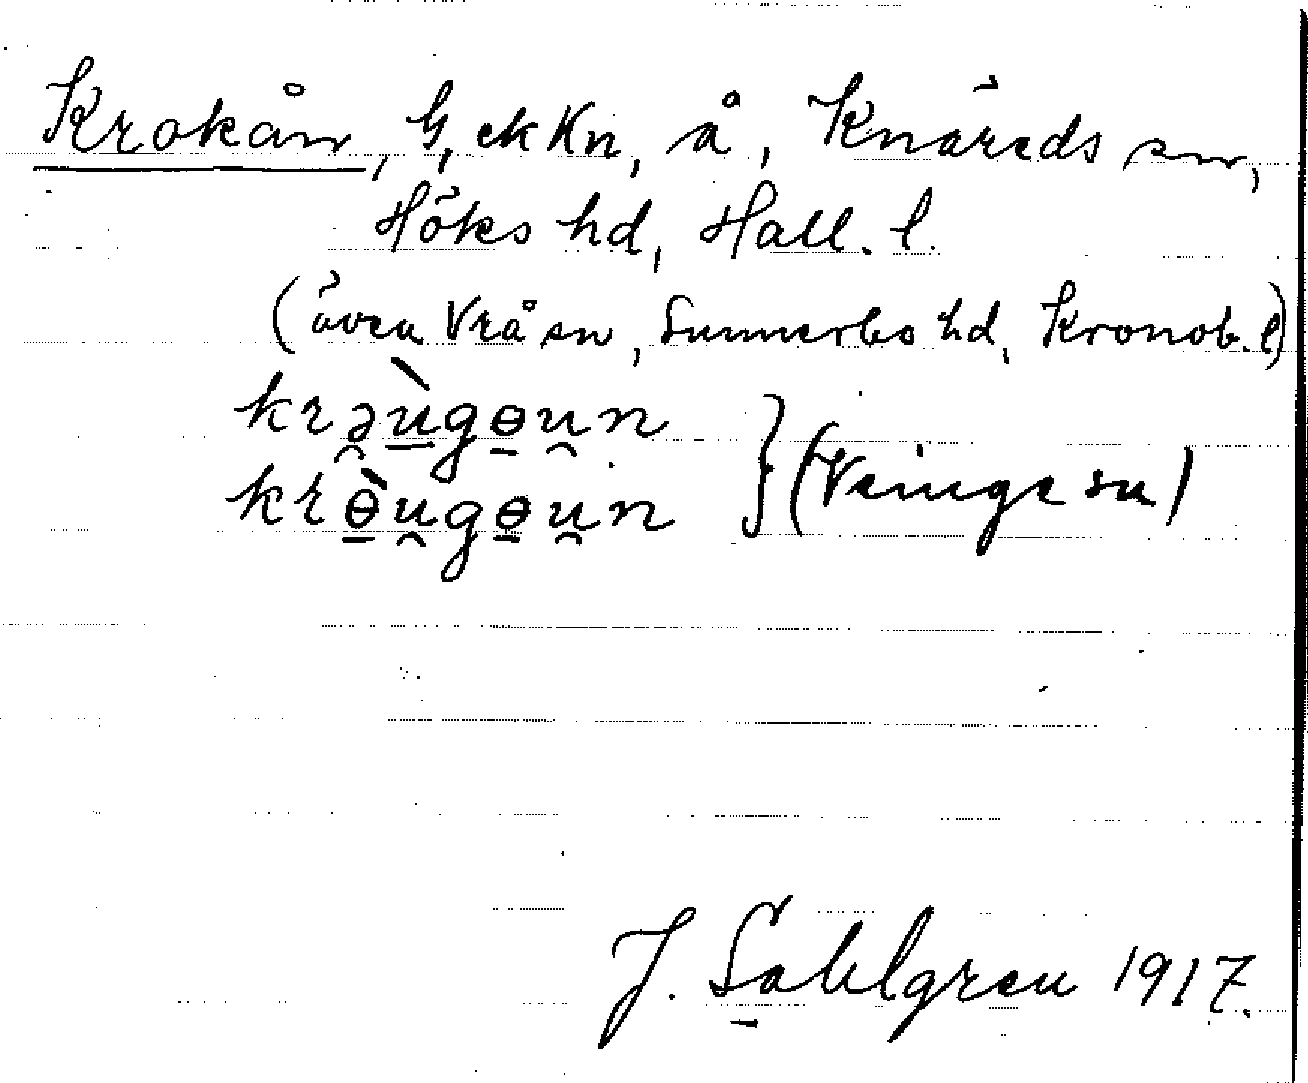 Krokån, G, ek Kn, å, Knäreds sn,
Höks hd, Hall. l.
(även Vrå sn, Sunnerbo hd, Kronob. l)
krə̯ùgɵu̯n
krɵ̀u̯gɵu̯n } (Veinge sn)
J. Sahlgren 1917.